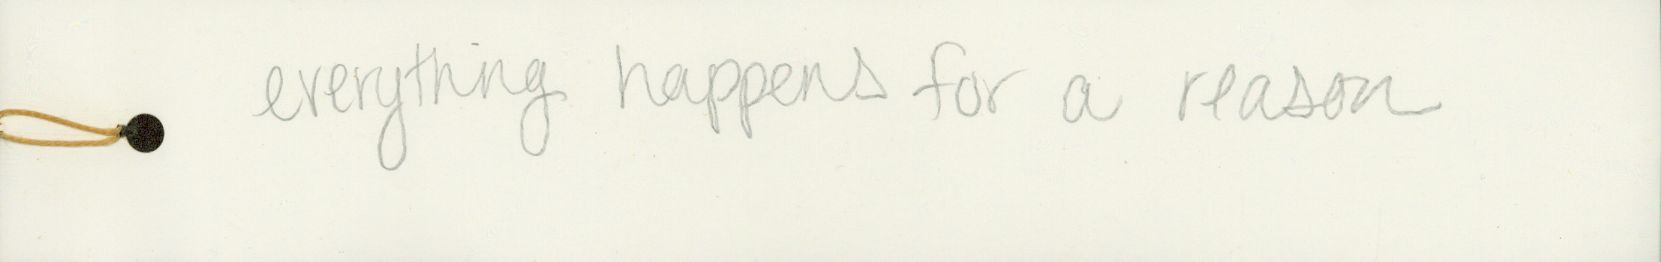 everything happens for a reason